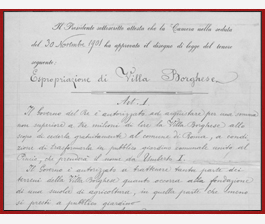 Il Presidente sottoscritto attesta che la Camera nella seduta
del 30 Novembre 1901 ha approvato il disegno di legge del tenore
seguente:
Espropriazione di Villa Borghese
Art. 1
Il Governo del Re è autorizzato ad acquistare per una somma
non superiore a tre milioni di lire la Villa Borghese allo
scopo di cederla gratuitamente al comune di Roma, a condi
zione di trasformarla in pubblico giardino comunale unito al
Pincio, che prenderà il nome da Umberto I.
Il Governo è autorizzato a trattenere tanta parte dei
terreni della Villa Borghese quanto occorra alla fondazione
di una scuola di agricoltura, in quella parte che meno
si presti a pubblico giardino